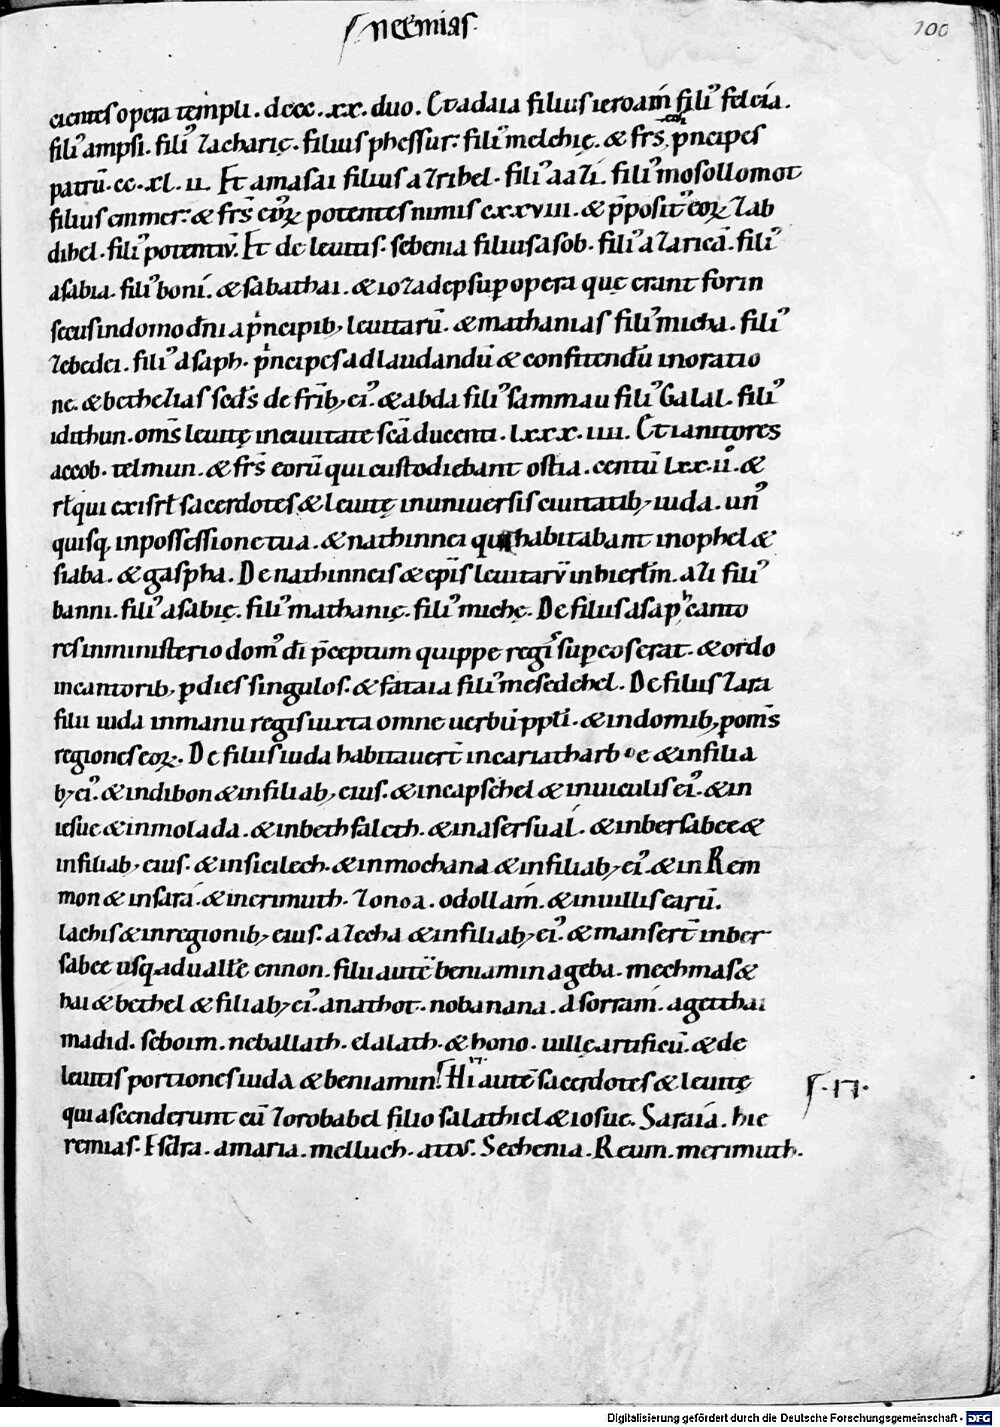 neemias.
100
cientes opera templi. dccc.xx. duo. Et adaia filius ieroam̄ fili᾽ felcia.
fili᾽ ampsi. fili᾽ zacharię. filius phessur: fili᾽ melchię. & fr̄s eoꝝ pͥncipes
patrū. cc.xl.ii. Et amasai filius azribel. fili᾽ aazi. fili᾽ mosollomot
filius emmer: & fr̄s eoꝝ potentes nimis cxxviii. & p̄posit᾽ eoꝝ zab
dihel. fili᾽ potentiū. Et de leuitis. sebenia filius asob. fili᾽ azaricā. fili᾽
asabia. fili᾽ boni. & sabathai. & iozadep sup opera quę erant forin
secus in domo dn̄i a pͥncipib; leuitarū. & mathanias fili᾽ micha. fili᾽
zebedei. fili᾽ asaph. pͥncipes ad laudandū & confitendū in oratio
ne. & bethezias sed̄s de fr̄ib; ei᾽. & abda fili᾽ sammau fili᾽ Galal. fili᾽
idithun. om̄s leuitę in ciuitate sc̄a ducenti. lxxx.iiii. Et ianitores
accob. telmun. & fr̄s eorū qui custodiebant ostia. centū lxx.iio. &
rł qui ex isrł sacerdotes & leuitę in uniuersis ciuitatib; iuda. un᾽
quisq; in possessione tua. & nathinnei qui habitabant in ophel &
siaba. & gaspha. De nathinneis & ep̄is leuitarū in hierłm. azi fili᾽
banni. fili᾽ asabię. fili᾽ mathanię. fili᾽ michę. De filiis asaph canto
res in ministerio dom᾽ dī p̄ceptum quippe regis sup eos erat. & ordo
in cantorib; p dies singulos. & fataia fili᾽ mesedehel. De filiis zara
filii iuda in manu regis iuxta omne uerbū ppłi. & in domib; p om̄s
regiones eoꝝ. De filiis iuda habitauert̄ in cariatharboe & in filia
b; ei᾽. & in dibon & in filiab; eius. & in capsehel & in uiculis ei᾽. & in
iesue & in molada. & in bethfaleth. & in asersual. & in bersabee &
in filiab; eius. & in sicilech. & in mochana & in filiab; ei᾽. & in Rem
mon & in sara. & in erimuth. zonoa. odollam. & in uillis earū.
lachis & in regionib; eius. azecha & in filiab; ei᾽. & mansert̄ in ber
sabee usq; ad uallē ennon. filii autē beniamin a geba. mechmas &
hai & bethel & filiab; ei᾽. anathot. nob anana. asor rama. agetthai
madid. seboim. neballath. elalath. & hono. uillę artificū. & de
leuitis portiones iuda & beniamin. Hi autē sacerdotes & leuitę
.17.
qui ascenderunt cū zorobabel filio salathiel & iosue. Saraia. hie
remias. Esdra. amaria. melluch. attus. Sechenia. Reum. merimuth.
Digitalisierung gefördert durch die Deutsche Forschungsgemeinschaft - DFG